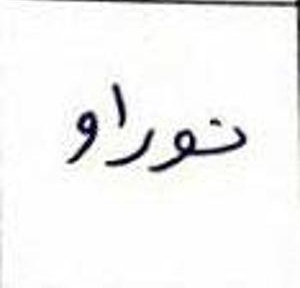 نوراو